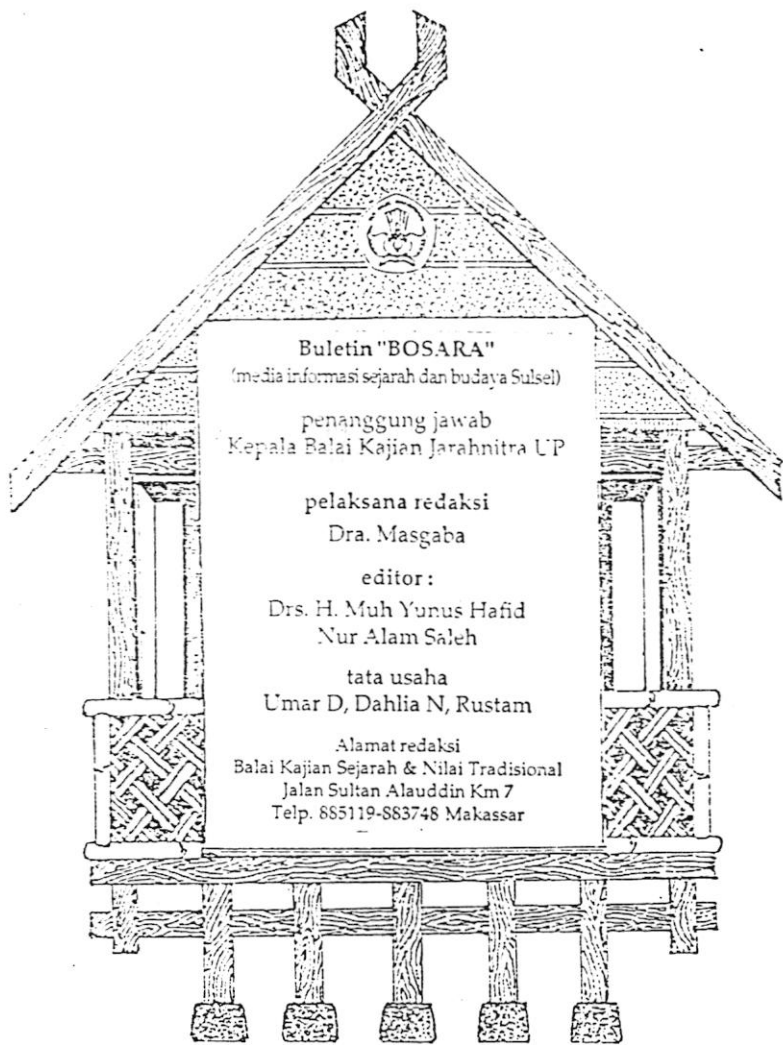 Buletin "BOSARA"
(media informasi sejarah dan budaya Sulsel)
penanggung jawab
Kepala Balai Kajian Jarahnitra UP
pelaksana redaksi
Dra. Masgaba
editor :
Drs. H. Muh Yunus Hafid
Nur Alam Saleh
tata usaha
Umar D, Dahlia N, Rustam
Alamat redaksi
Balai Kajian Sejarah & Nilai Tradisional
Jalan Sultan Alauddin Km 7
Telp. 885119-883748 Makassar